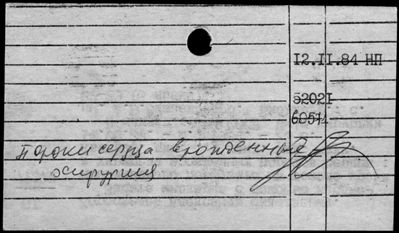 12.II.84 НП
52021
60514
пороки сердца врожденные
хирургия